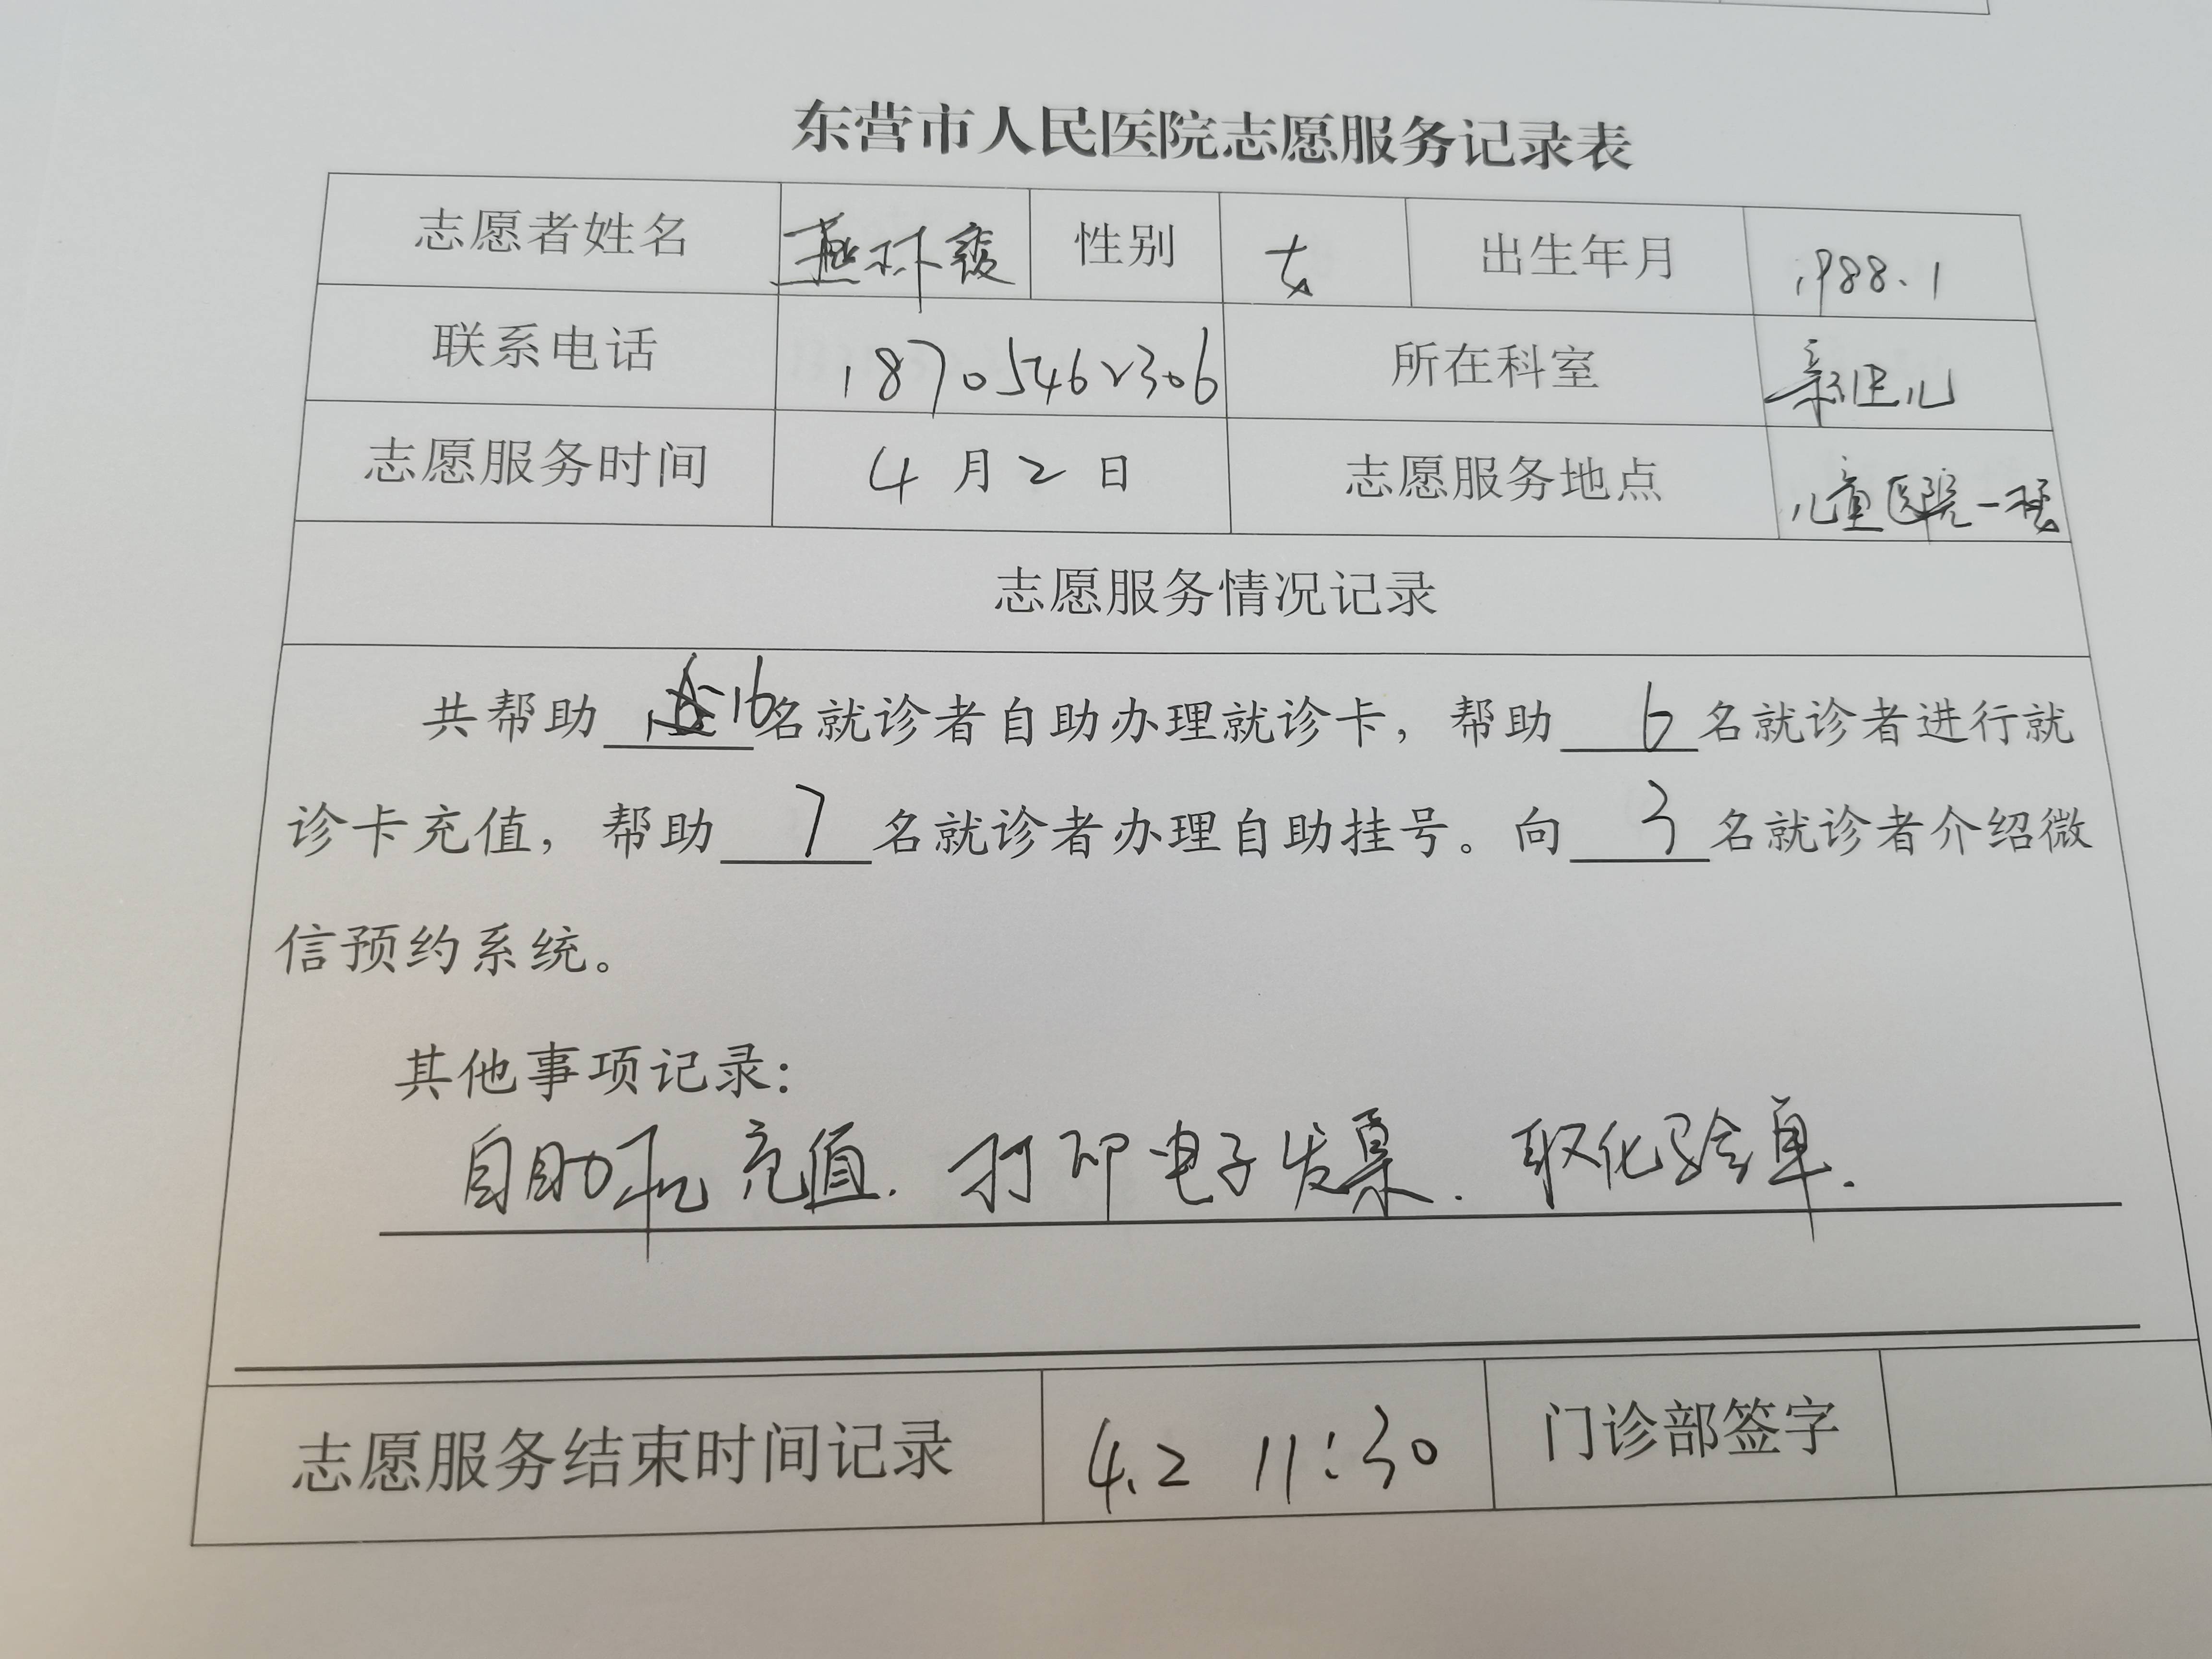 东营市人民医院志愿服务记录表
志愿者姓名 燕林霞 性别 女 出生年月 1988.1
联系电话 18705462306 所在科室 新生儿
志愿服务时间 4月2日 志愿服务地点 儿童医院一楼
志愿服务情况记录
共帮助 16名就诊者自助办理就诊卡，帮助 6 名就诊者进行就
诊卡充值，帮助 7 名就诊者办理自助挂号。向 3 名就诊者介绍微
信预约系统。
其他事项记录：
自助机充值. 打印电子发票. 取化验单.
志愿服务结束时间记录 4.2 11:30 门诊部签字